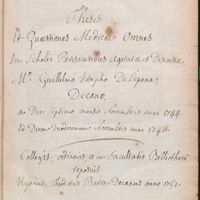 Theses
Et Quæstiones Medicæ Omnes
In Scholis Parisiensibus Agitatæ et Discussæ,
Mro. Guillelmo Josepho De L'epine,
Decano
a Die Septimo mensis Novembris anni 1744.
ad Diem Novembris anni 1746.
Collegit, ordinavit, et in Facultatis Bibliotheca
reposuit
Hyacint. Theodorus Baron Decanus anno 1751.